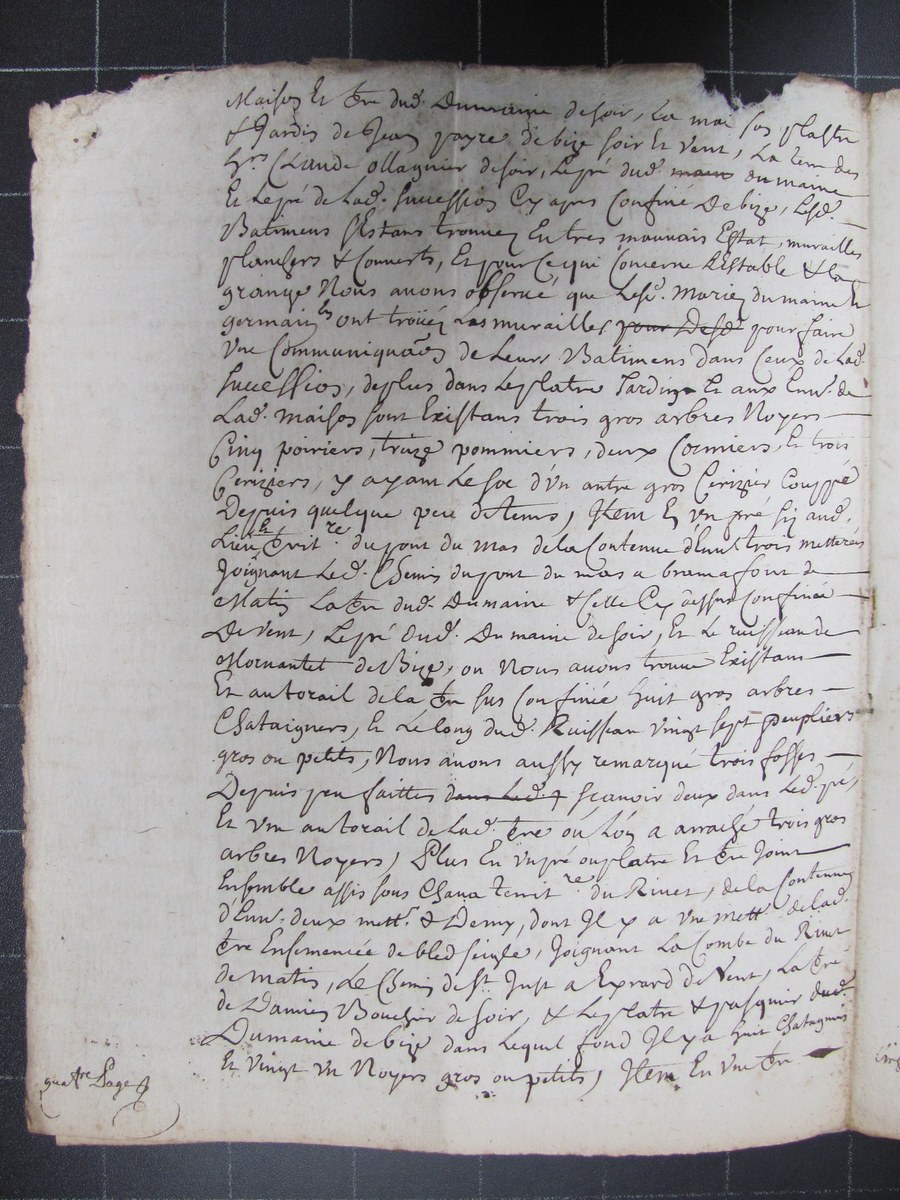 Maison Et tre dud. Dumaine de soir, La mai son plastre
& Jardin de Jean payre de bize soir Et vent, La terre des
hrs Claude ollagnier de soir, Le pré dud. dumaine
Et Le pré de Lad. succession Cy apres Confiné De bize, Lesd.
Batimens sEstans trouvez En tres mauvais Estat, murailles
planchers & Couverts, Et pour Ce qui Concerne LEstable & La
grange Nous avons observé que Lesd. Mariez dumaine Et
germain ont troüéz Les murailles pour Desd pour faire
vne Communiquaon de Leurs Batimens dans Ceux de Lad.
succession, de plus dans Le platre Jardin Et aux Env. de
Lad. maison sont Existans trois gros arbres Noyers
Cinq poiriers, treize pommiers, deux Cormiers, Et trois
Ceriziers, y ayant Le soc d'vn autre gros Cerizier Couppé
Depuis quelque peu de tems, Item En vn pré sis aud.
Lieu Et territre du pont du mas de la Contenue d'Env. trois metterées
Joignant Led. Chemin du pont du mas a bramafont de
Matin La tre dud. Dumaine & Celle Cy dessus Confinée
De Vent, Le pré dud. Dumaine de soir, Et Le ruisseau de
Mornantet de Bize, ou Nous avons trouvé Existans
Et au torail de la tre sus Confinée huit gros arbres
Chataigners, Et Le long dud. Ruisseau vingt sept peupliers
gros ou petits, Nous avons aussy remarqué trois fosses
Depuis peu faittes dans Led. scavoir deux dans Led. pré,
Et vne au torail de Lad. tre où L'on a arraché trois gros
arbres Noyers, Plus En vn pré ou platre Et tre Joint
Ensemble assis sous Chava territre du Rivet, de la Contenue
d'Env. deux mett. & Demy, dont Il y a vne mett. de lad.
tre Ensemencée de bled seigle, Joignant La Combe du Rivet
de matin, Le Chemin de St Just a Exrard de Vent, La tre
de Damien Boucher de soir, & Le platre & pasquier dud.
Dumaine de bize dans Lequel fond Il y a huit Chataigniers
Et Vingt vn Noyers gros ou petits, Item En vne tre
quatre Page